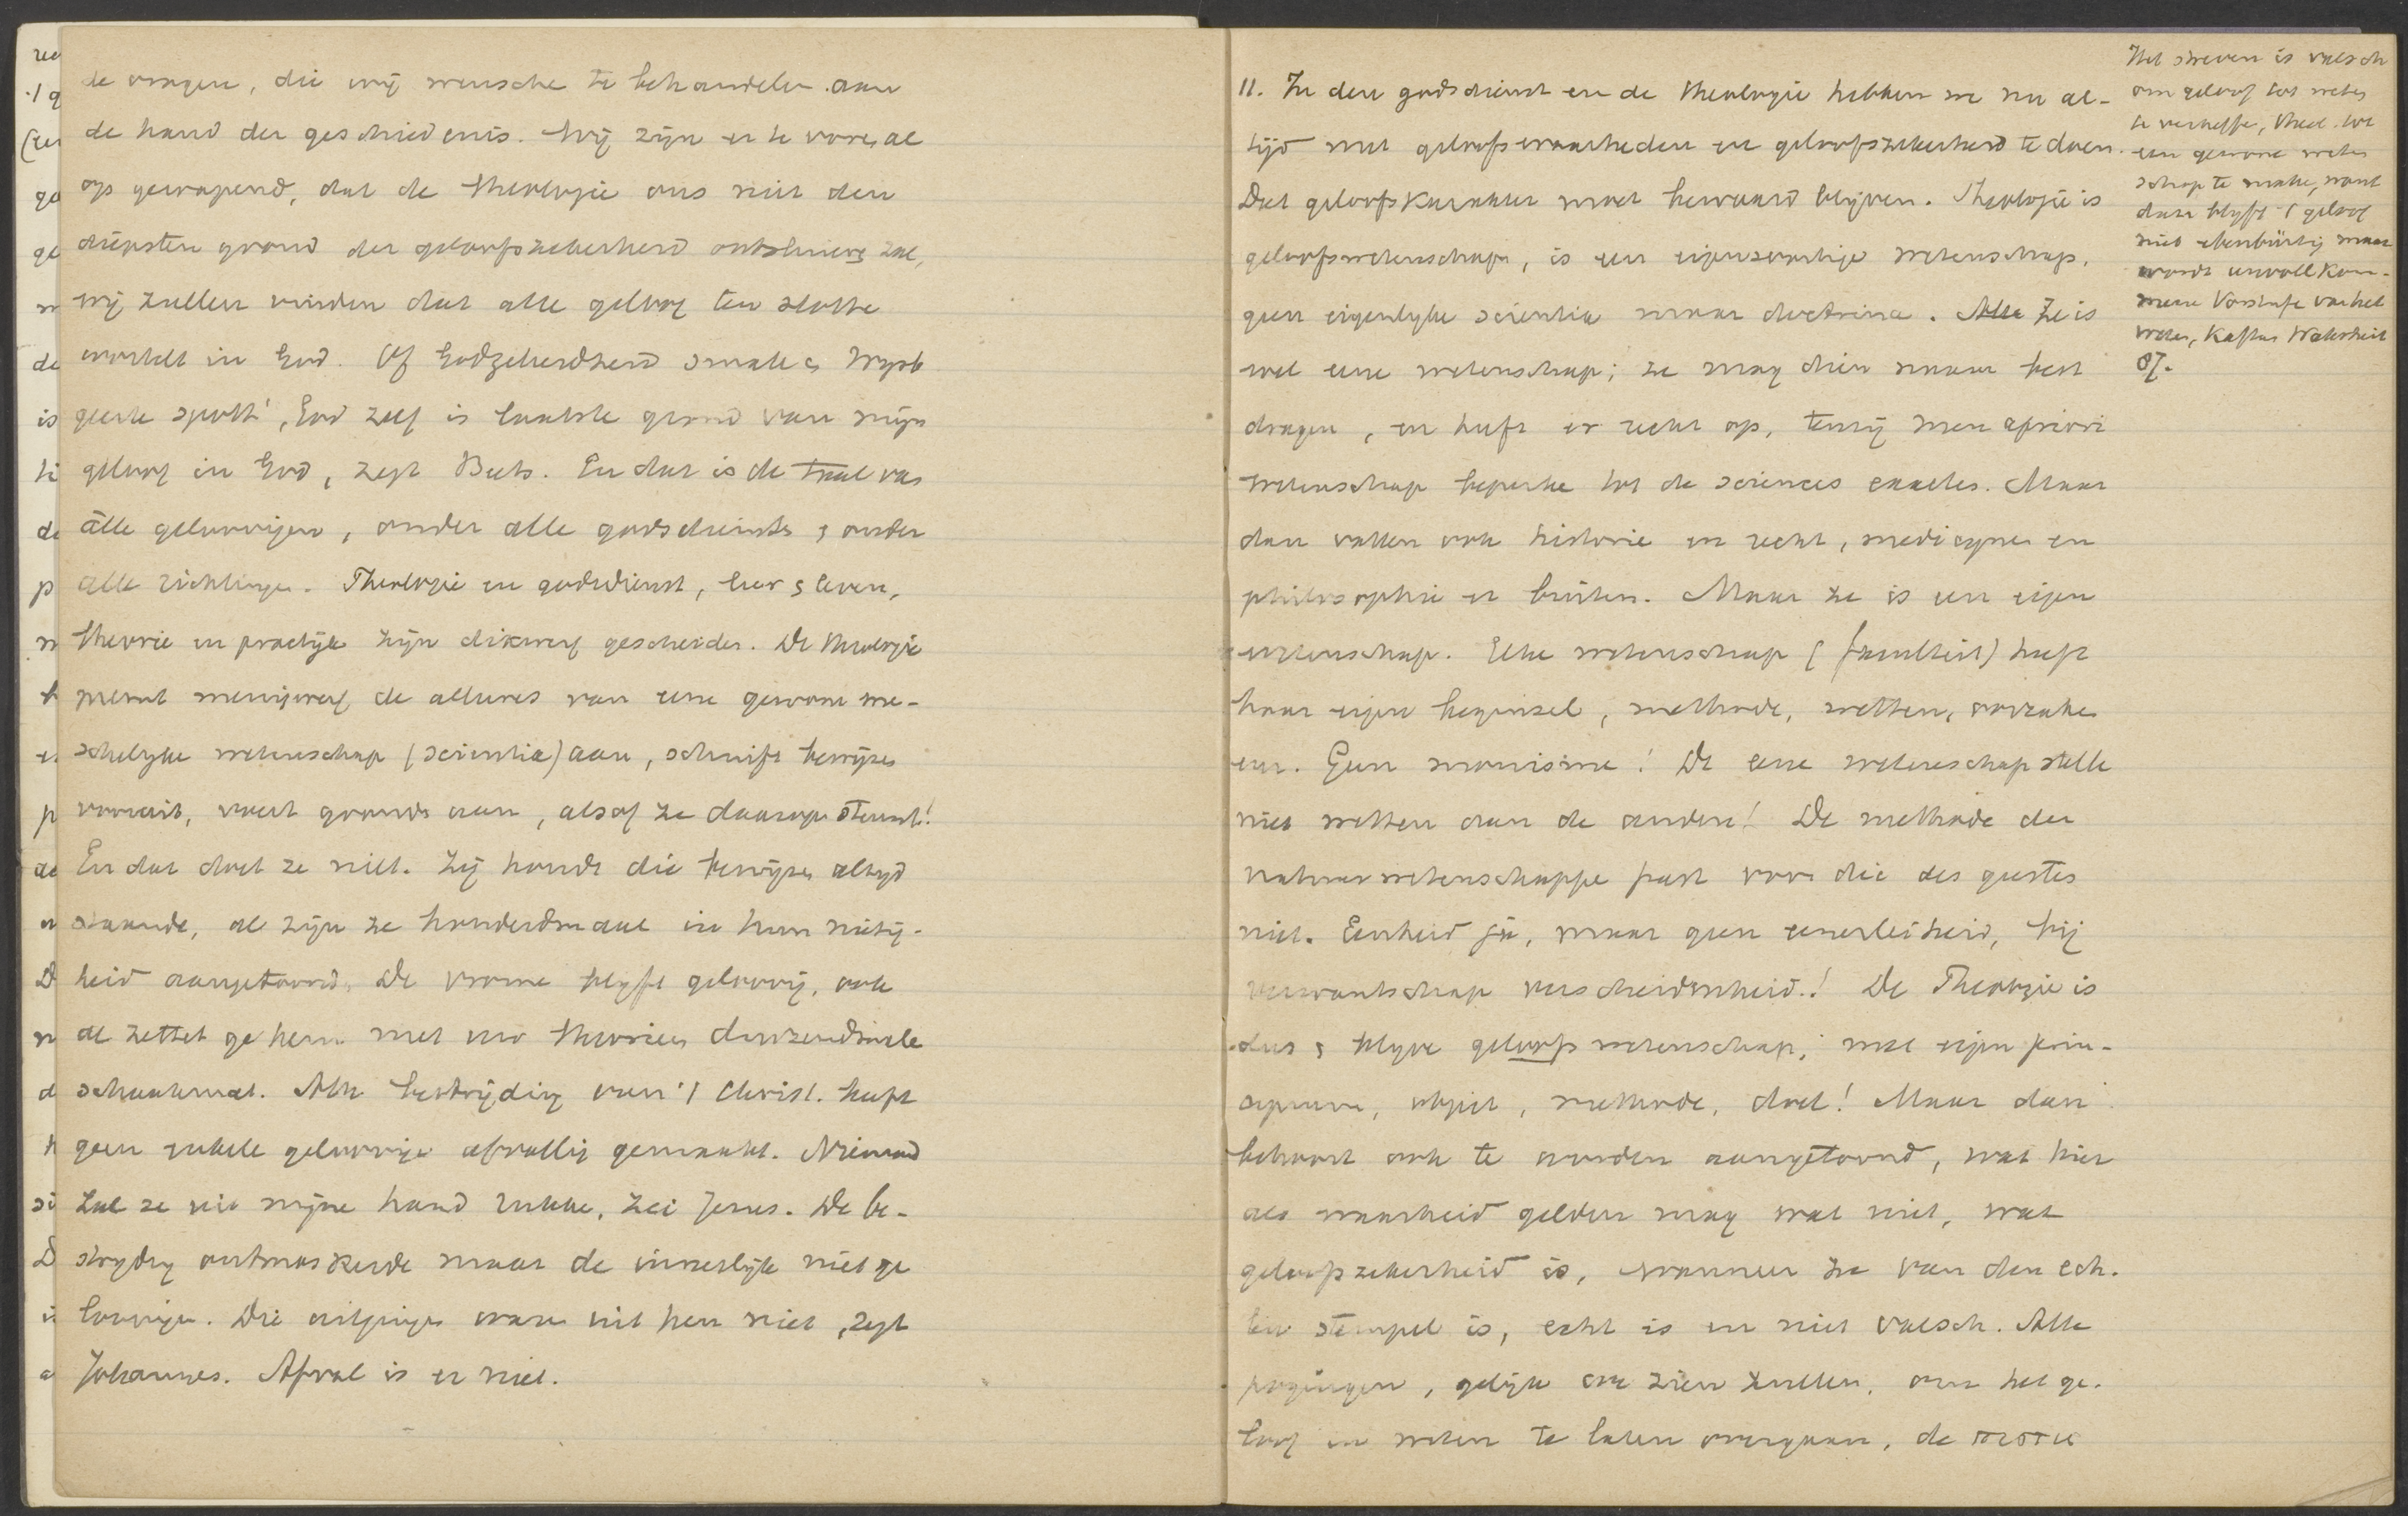 de vragen, die wij wensche te behandelen aan
de hand der geschiedenis. Wij zijn er te voren al
op gewapend, dat de theologie ons niet den
diepsten grond der geloofszekerheid ontsluieren zal,
wij zullen vinden dat alle geloof ten slotte
wortelt in God. Of Godzekerdheid smale en Wijsb
geerte spott', God zelf is laatste grond van mijn
geloof in God, zegt Beets. En dat is de taal van
alle geloovigen, onder alle godsdiensten, onder
alle richtingen. Theologie en godsdienst, leer en leven,
theorie en practijk zijn dikwerf gescheiden. De theologie
neemt menigwerf de allures van eene gewone men-
schelijke wetenschap (scientia) aan, schuift bewijzen
vooruit, voert gronden aan, alsof ze daarop steunt!
En dat doet ze niet. Zij houdt die bewijzen altijd
staande, al zijn ze honderdmaal in hun nietig-
heid aangetoond. De vrome blijft geloovig, ook
al zettet ge hem met uw theorieen duizendmale
schaakmat. Alle bestrijding van 't Christ. heeft
geen enkele geloovige afvallig gemaakt. Niemand
zal ze uit mijne hand rukke, zei Jezus. De be-
strijding ontmaskerde maar de innerlijk niet ge
loovigen. Die uitgingen waren uit hen niet, zegt
Johannes. Afval is er niet.
11. In den godsdienst en de theologie hebben we nu al-
tijd met geloofswaarheden en geloofszekerheid te doen.
Dat geloofskarakter moet bewaard blijven. Theologie is
geloofswetenschap, is een eigensoortige wetenschap,
geen eigenlijke scientia maar doctrina. Alle Ze is
wel eene wetenschap; ze mag dien naam best
dragen, en heeft er recht op, tenzij men apriori
wetenschap beperke tot de sciences exactes. Maar
dan vallen ook historie en recht, medicijnen en
philosophie er buiten. Maar ze is een eigen
wetenschap. Elke wetenschap (faculteit) heeft
haar eigen beginsel, methode, wetten, oorzaken
enz. Geen monisme! De eene wetenschap stelle
niet wetten aan de andere! De methode der
natuurwetenschappe past voor die des geestes
niet. Eenheid ja, maar geen eenerleiheid, bij
verwantschap verscheidenheid! De Theologie is
dus en blijve geloofs wetenschap, met eigen prin-
cipium, object, methode, doel! Maar dan
behoort ook te worden aangetoond, wat hier
als waarheid gelden mag wat niet, wat
geloofszekerheid is, wanneer ze van den ech-
ten stempel is, echt is en niet valsch. Alle
pogingen, gelijk we zien zullen, om het ge-
loof in weten te laten overgaan, de πιστις
Het streven is valsch
om geloof tot weten
te verheffe, theol. tot
een gewone weten
schap te make, want
dan blijft 't geloof
niet ebenbürtig maar
wordt unvollkom-
mene Vorstufe van het
weten, Kaftan Wahrheit
87.